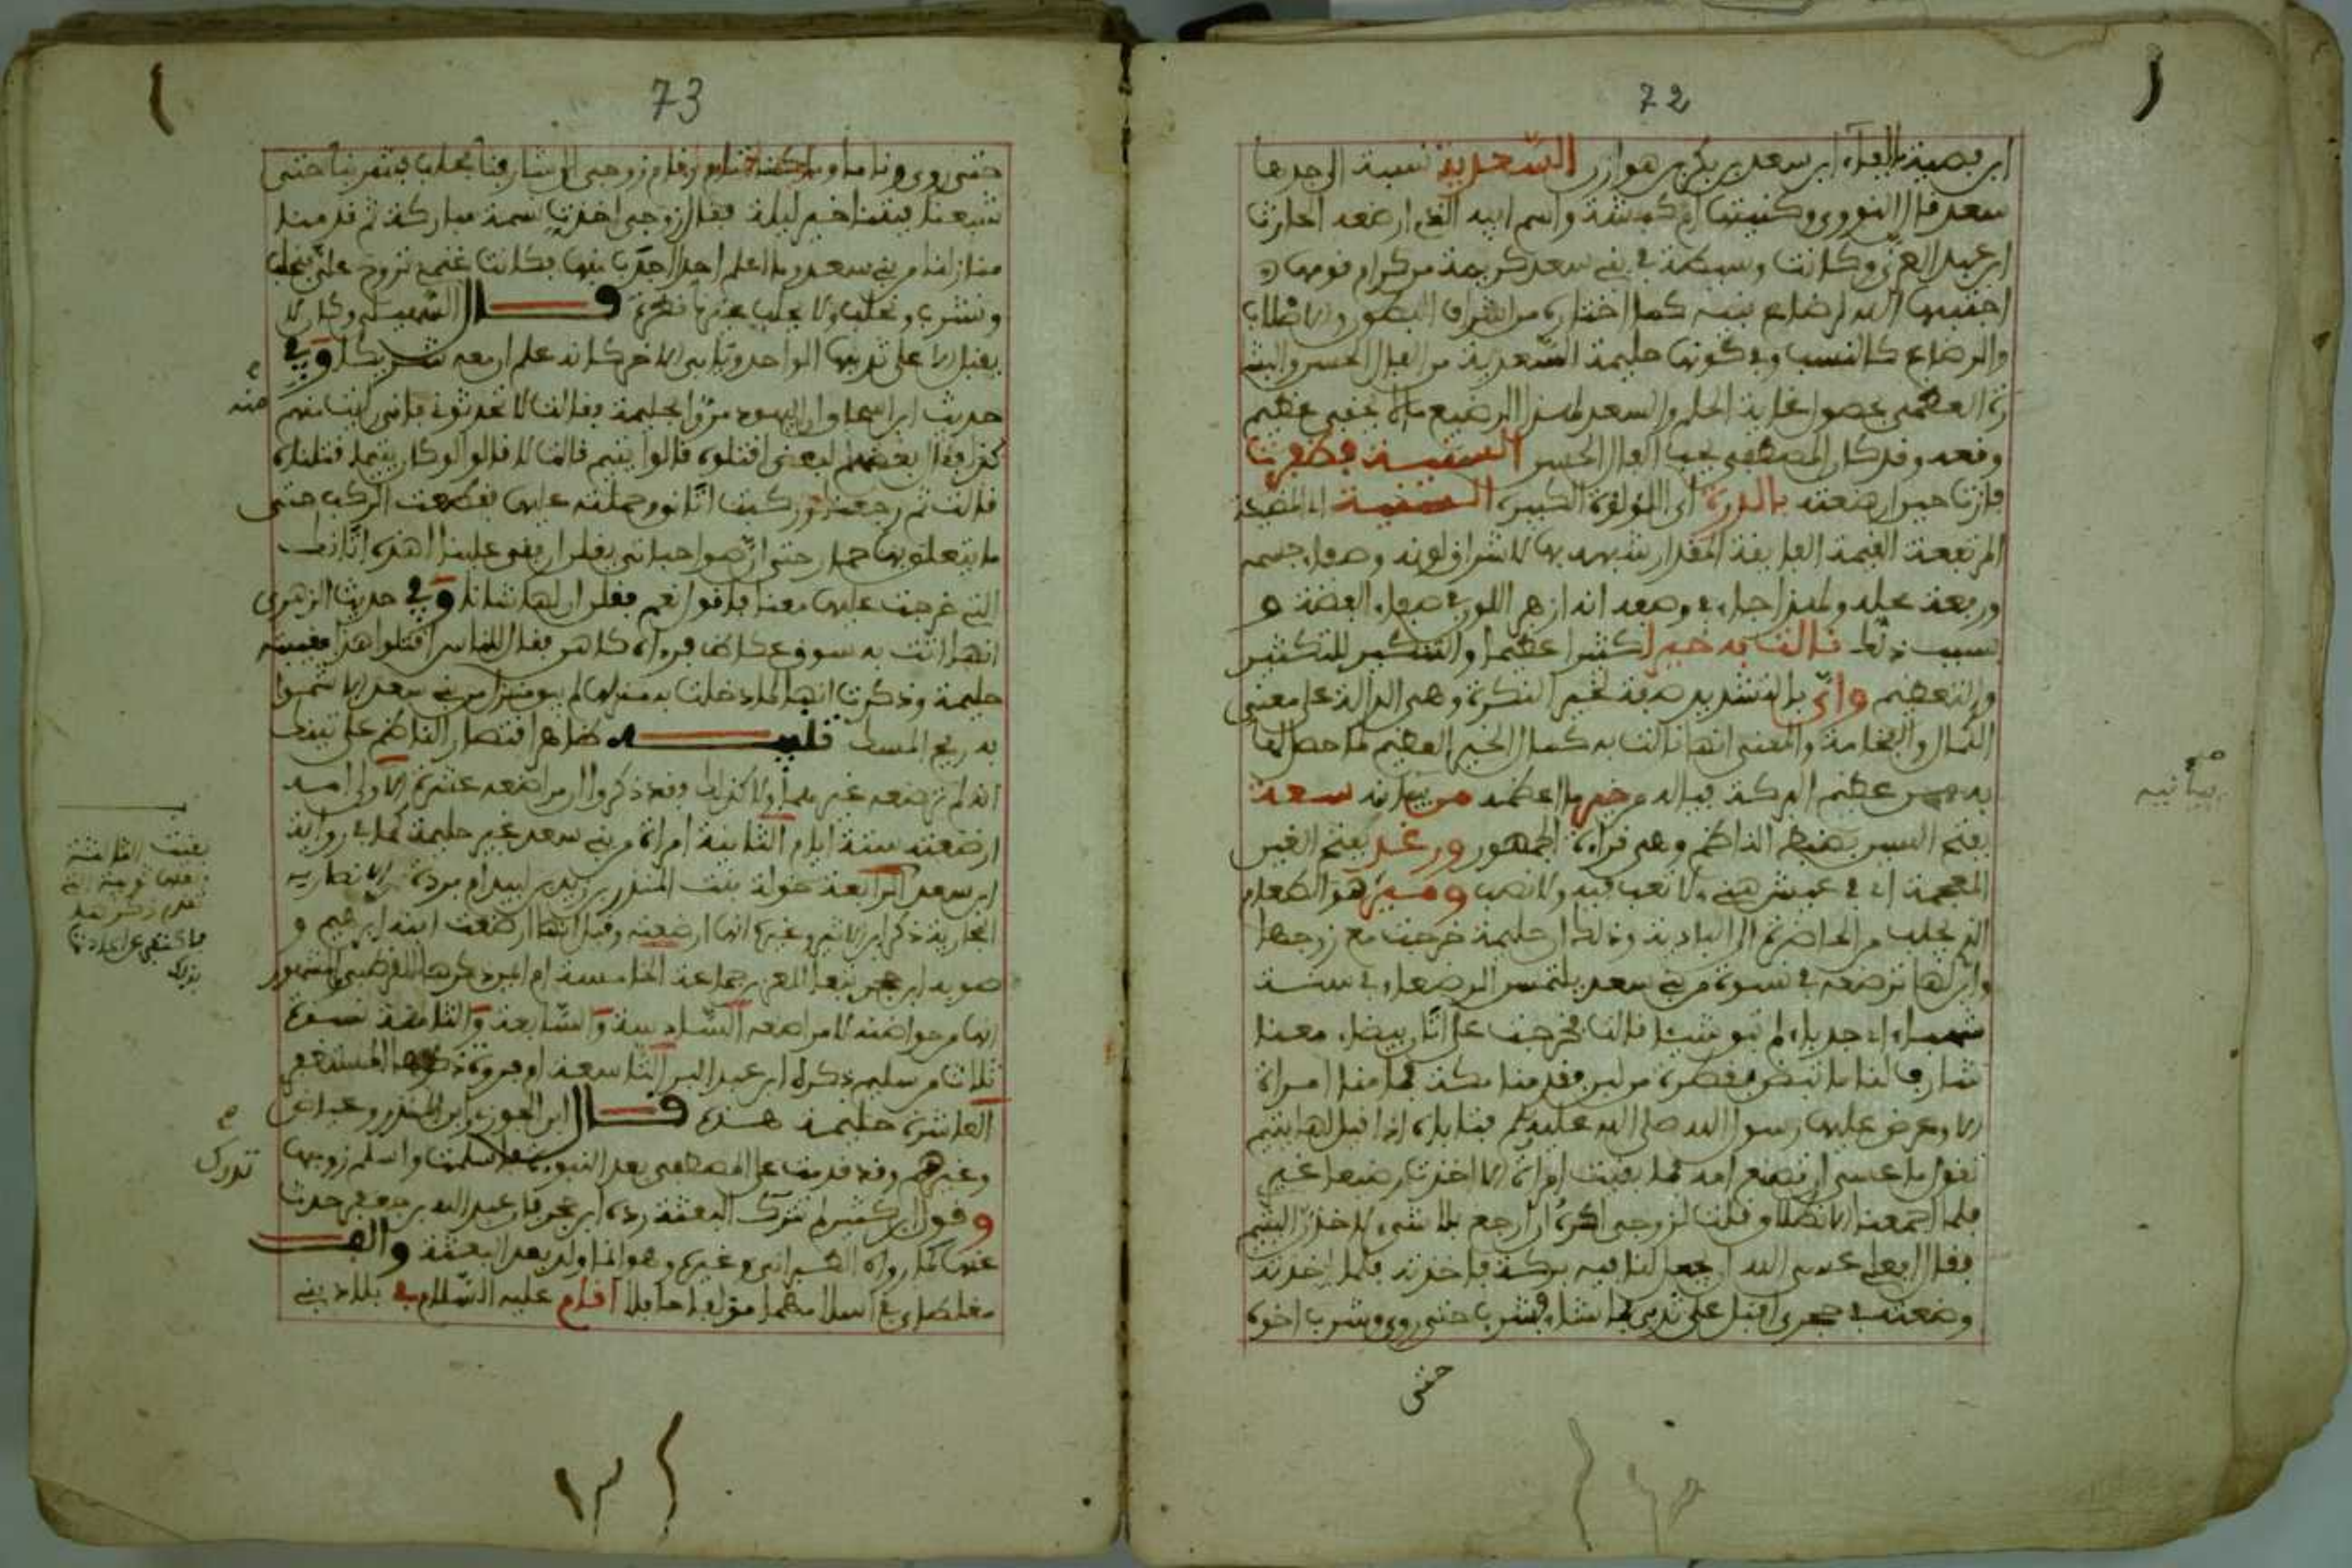 72
ابن فصية بالفاء ابن سعد بن بكر بن هوازن السعدية نسبة الى جدها
سعد قال النووى وكنيتها ام كبشة واسم ابيه الذى ارضعه الحارث
ابن عبد العزى وكانت وسيطة في بنى سعد كريمة من كرام قومها
اجتبيها الله لرضاع نبيه كما اختاره من اشراف البطون والاصلاب
والرضاع كالنسب وفي كونها حليمة السعدية من الفال الحسن والبشا
رة العظمى بحصول غاية الحلم والسعد لهذا الرضيع ما لا يخفى عظيم
وقعه وقد كان المصطفى يحب الفال الحسن السنية فظفرت
فازت حين ارضعته بالدرة اى اللؤلؤة الكبيرة السنية اى المضيئة
المرتفعة القيمة الفايقة المقدار شبهه بها لاشراق لونه وصفاء جسمه
ورفعة محله ولهذا جاء في وصفه انه ازهر اللون في صفاء الفضة و
بسبب ذلك نالت به خيرا كثيرا عظيما والتنكير للتكثير
والتعظيم واى بالتشديد صفة لخير النكرة وهى الدالة على معنى
الكمال والفخامة والمعنى انها نالت به كمال الخير العظيم فما حصل لها
به من عظيم البركة فياله من خير ما اعظمه من بيانية سعة
بفتح السين بضبط الناظم وهى قراءة الجمهور ورغد بفتح الغين
المعجمة اى في عيش هنى لا تعب فيه ولا نصب ومير هو الطعام
الذى يجلب من الحاضرة الى البادية وذلك ان حليمة خرجت مع زوجها
وابن لها ترضعه في نسوة من بنى سعد يلتمسن الرضعاء في سنة
شهباء اى جدباء لم تبق شيئا قالت فخرجت على اتان بيضاء معنا
شارف لنا ما تبض بقطرة من لبن فقدمنا مكة فما منا امراة
الا وعرض عليها رسول الله صلى الله عليه وسلم فتاباه اذا قيل لها يتيم
نقول ما عسى ان تصنع امه فما بقيت امراة الا اخذت رضيعا غيرى
فلما اجمعنا الانطلاق قلت لزوجى اكره ان ارجع بلا شىء لاخذن اليتيم
فقال افعلى عسى الله ان يجعل لنا فيه بركة فاخذته فلما اخذته
وضعته في حجرى اقبل على ثديى بما شاء فشرب حتى روى وشرب اخوه
حتى
بيانية
73
حتى روى وناما وما كنا ننام وقام زوجى الى شارفنا فحلب فشربنا حتى
شبعنا فبتنا خير ليلة فقال زوجى اخذت نسمة مباركة ثم قدمنا
منازلنا من بنى سعد وما اعلم ارضا اجدب منها فكانت غنمى تروح على فنحلب
ونشرب ونحلب ولا يحلب غيرنا قطرة قال السهيلى وكان لا
يقبل الا على ثديها الواحد ويابى الاخر كانه علم ان معه شريكا وفي
حديث ابن اسحاق ان اليهود مروا بحليمة فقالت لا تحدثونى فانى رايت منه
كذا فقال بعضهم لبعض اقتلوه قالوا يتيم قالت لا قالوا لو كان يتيما قتلناه
قالت ثم رجعنا وركبت اتانى وحملته عليها فقطعت الركب حتى
ما يتعلق بها حمار حتى ان صواحباتى يقلن ارفقى علينا اهذه اتانك
التى خرجت عليها معنا فاقول نعم فيقلن ان لها شانا وفي حديث الزهرى
انها اتت به سوق عكاظ فرءاه كاهن فقال للناس اقتلوا هذا فغيبته
حليمة وذكرت انها لما دخلت به منزلها لم يبق منزل من بنى سعد الا شموا
به ريح المسك تنبيه ظاهر اقتصار الناظم على ثيبة
انه لم ترضعه غيرهما ولا كذلك وقد ذكروا ان مراضعه عشرة الاولى امه
ارضعته ستة ايام الثانية امراة من بنى سعد غير حليمة كما في رواية
ابن سعد الرابعة خولة بنت المنذر بن زيد بن لبيد ام بردة الانصارية
النجارية ذكر ابن الاثير وغيره انها ارضعته وقيل انها ارضعت ابنه ابرهيم و
صوبه ابن حجر تبعا للعز بن جماعة الخامسة ام ايمن ذكرها القرطبى والمشهور
انها من حواضنه لا من مراضعه السادسة والسابعة والثامنة نسوة
ثلاث من سليم ذكره ابن عبد البر التاسعة ام فروة ذكرها المستغفرى
العاشرة حليمة هذه قال ابن الجوزى وابن المنذر وعياض
وغيرهم وقد قدمت على المصطفى بعد النبوءة فاسلمت واسلم زوجها
وقول ابن كثير لم تدرك البعثة رده ابن حجر فان عبد الله بن جعفر حدث
عنها كما رواه الطبرانى وغيره وهو انما ولد بعد البعثة والف
مغلطاى في اسلامهما مؤلفا حافلا اقام عليه السلام في بلاد بنى
منه
بقيت الثالثة
تقدم ذكرها
تدرك